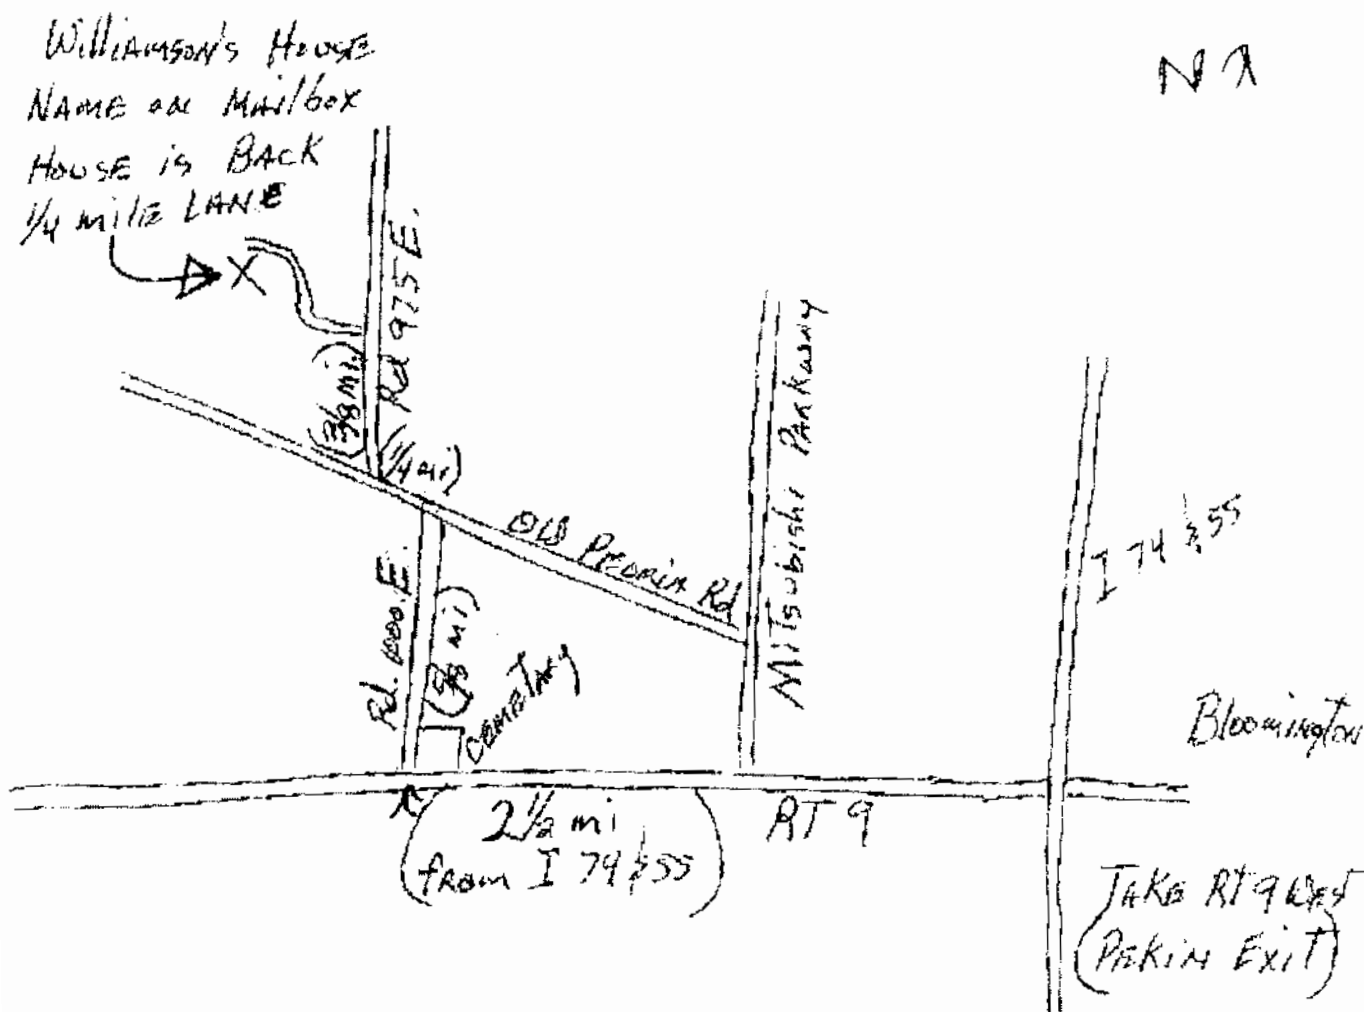 Williamson's House
Name on Mailbox
House is Back
1/4 mile Lane
N
Rd 975 E.
(3/8 mi.)
(1/4 mi)
Old Peoria Rd
Mitsubishi Parkway
I 74 & 55
Rd. 1000. E.
Cemetary
Bloomington
2 1/2 mi
from I 74 & 55
RT 9
Take RT 9 West
(Pekin Exit)